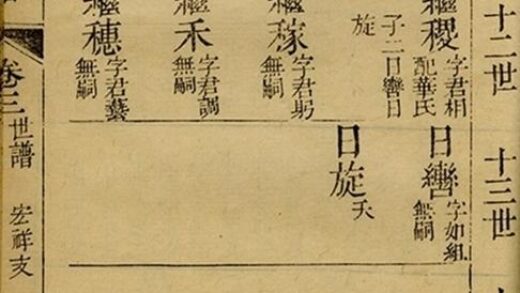 十二世
繼稷
字君相
配華氏
子二日轡日
旋
繼稼
字君躬
無嗣
繼禾
字君調
無嗣
繼穗
字君藝
無嗣
十三世
日轡
字如組
無嗣
日旋
夭
卷三世譜
宏祥支